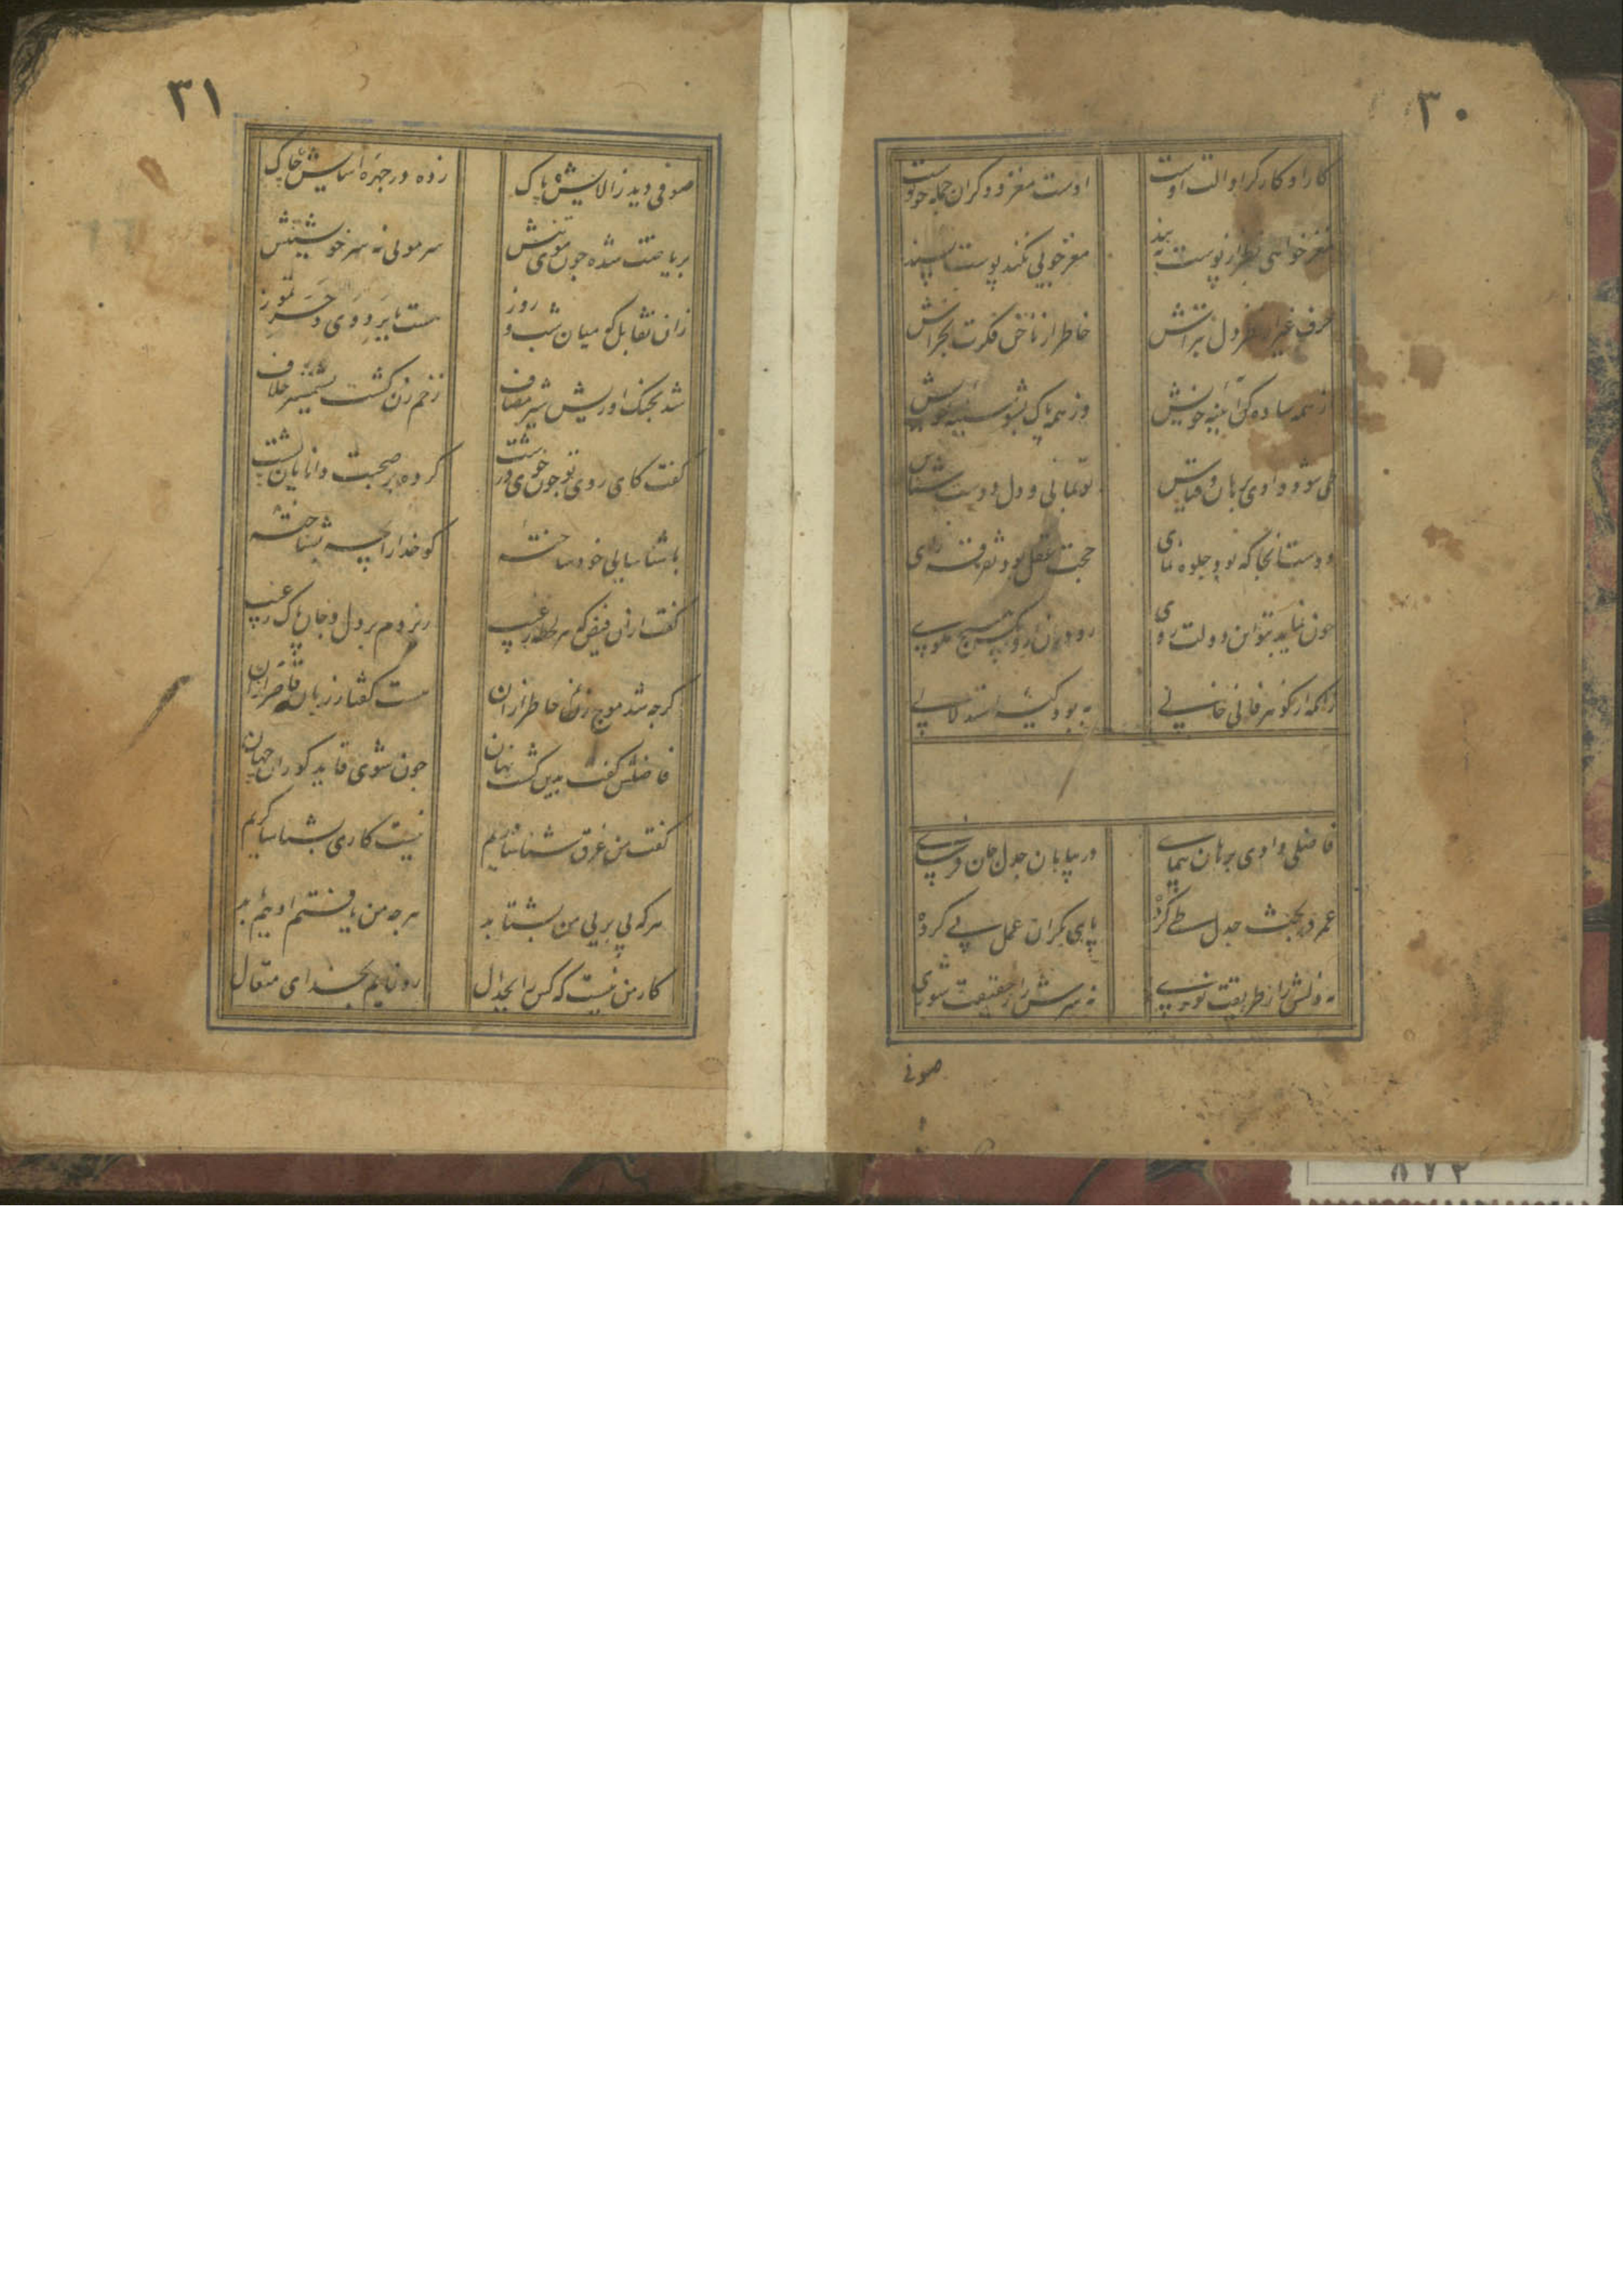 ۳۰
کار او کارگر او آلت اوست اوست مغز و دگران جمله چو پوست
مغز خواهی نظر از پوست ببند مغزجویی نکند پوست پسند
حرف غیر از ورق دل بتراش خاطر از ناخن فکرت بخراش
از همه ساده کن آیینه خویش وز همه پاک بشو سینه خویش
طی شود وادی برهان و قیاس تو بمانی و دل دوست شناس
دوست آنجا که بود جلوه نمای حجت عقل بود تفرقه زای
چون نماید بتو این دولت روی رو در آن آر و بکس هیچ مگوی
زانکه از گوهر عرفان خالی به بود کیسه استدلالی
فاضلی وادی برهان پیمای در بیابان جدل جان فرسای
عمر در بحث جدل طی کرده پای بکران عمل پی کرده
نه دلش را ز طریقت نوری نه سرش را ز حقیقت شوری
صوفی
۳۱
صوفی دید ز آلایش پاک زده در چهره آسایش چاک
بریاضت شده چون موی تنش سر مویی نه سر خویشتنش
زان تقابل که میان شب و روز هست یا برد دی و حر تموز
شد بجنگ آوریش شیر مصاف زخم زن گشت بشمشیر خلاف
گفت کای روی تو چون خوی درشت کرده بر صحبت دانایان پشت
با شناسایی خود ساخته گو خدا را بچه بشناخته
گفت از آن فیض که هر لحظه ز غیب ریزدم بر دل و جان پاک ز عیب
گرچه شد موج زنان خاطر از آن هست گفتار زبان قاصر از آن
فاضلش گفت بدین گشته نهان چون شوی قاید کوران جهان
گفت من غرق شناسائیم نیست کاری بشناسا گریم
هر که پی بر پی من بشتابد هر چه من یافتم او هم یابد
کار من نیست که کس را بجدال رو نمایم بخدای متعال
۸۷۲